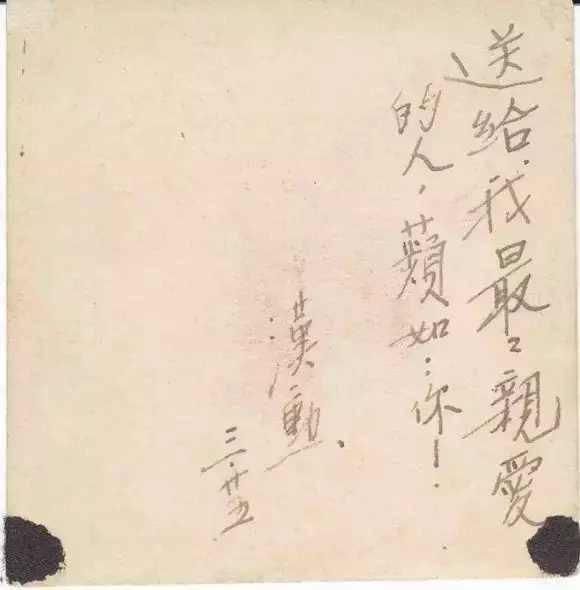 送給我最々親愛
的人，蘋如：你！
漢勳、
三·廿五